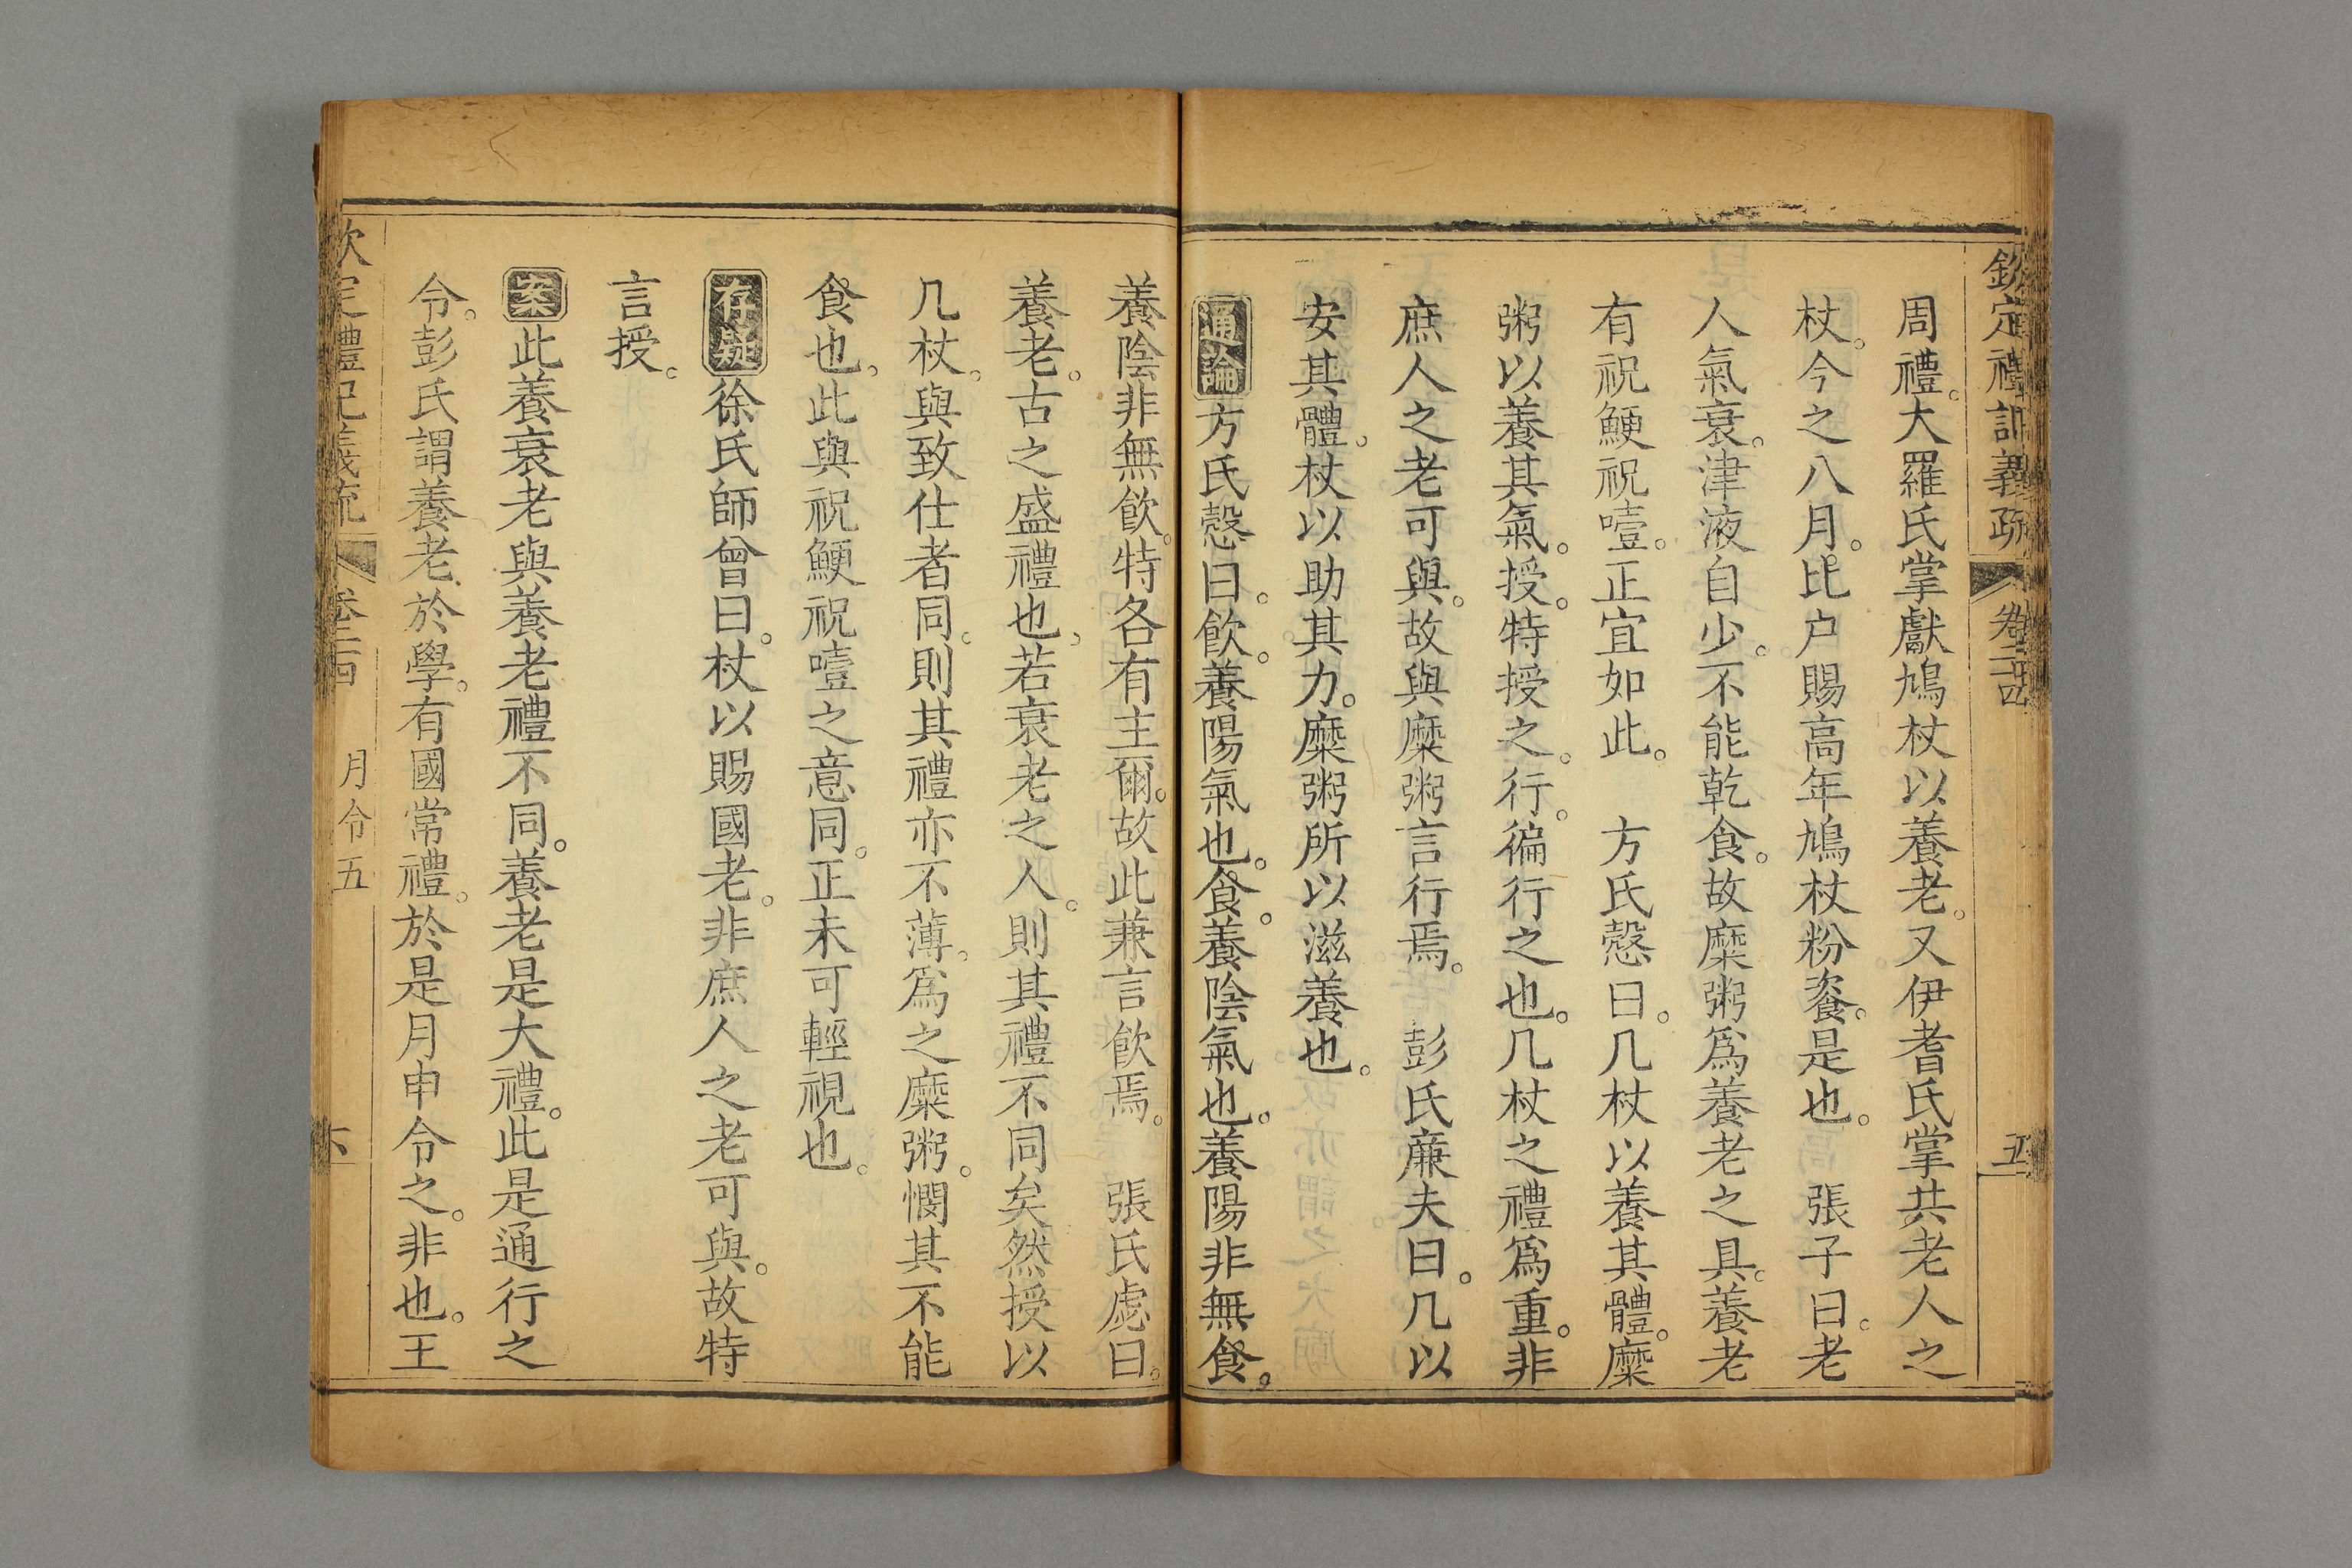 欽定禮記義疏 卷二十四 五
周禮。大羅氏掌獻鳩杖以養老。又伊耆氏掌共老人之
杖。今之八月。比户賜高年鳩杖粉餈。是也。 張子曰。老
人氣衰。津液自少。不能乾食。故糜粥爲養老之具。養老
有祝鯁祝噎。正宜如此。 方氏慤曰。几杖以養其體。糜
粥以養其氣。授。特授之。行。徧行之也。几杖之禮爲重。非
庶人之老可與。故與糜粥言行焉。 彭氏廉夫曰。几以
安其體。杖以助其力。糜粥所以滋養也。
通論方氏慤曰。飲。養陽氣也。食。養陰氣也。養陽非無食。
養陰非無飲。特各有主爾。故此兼言飲焉。 張氏虙曰。
養老。古之盛禮也。若衰老之人。則其禮不同矣然授以
几杖。與致仕者同。則其禮亦不薄。爲之糜粥。憫其不能
食也。此與祝鯁祝噎之意同。正未可輕視也。
存疑徐氏師曾曰。杖以賜國老。非庶人之老可與。故特
言授。
案此養衰老與養老禮不同。養老是大禮。此是通行之
令。彭氏謂養老於學。有國常禮。於是月申令之。非也。王
欽定禮記義疏 卷二十四 月令五